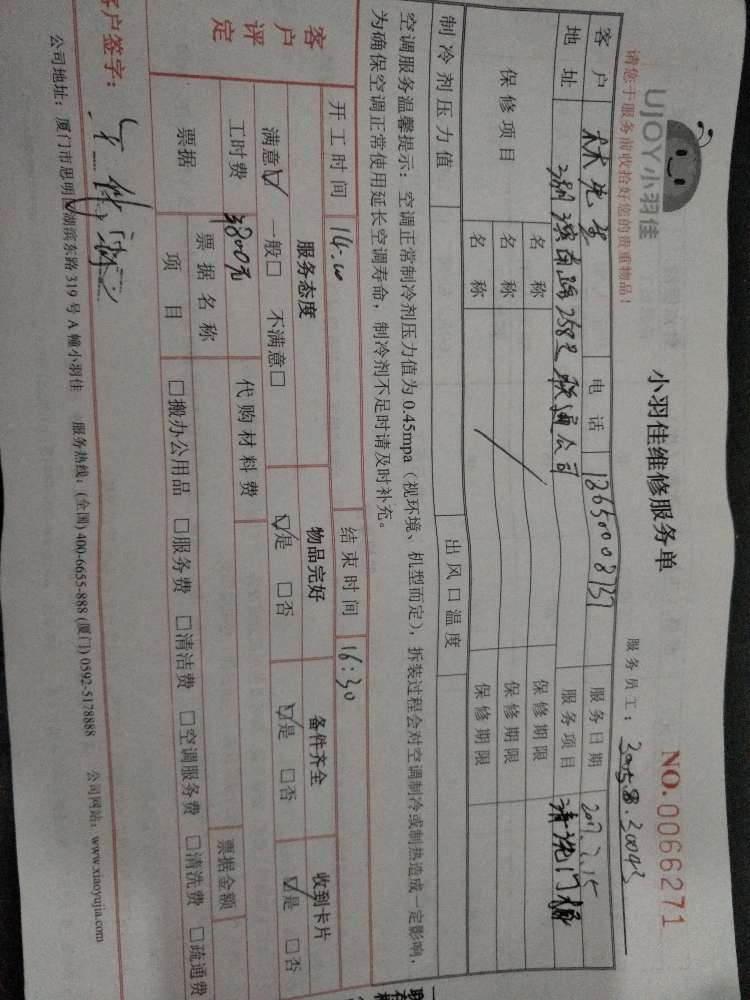 UJOY小羽佳
小羽佳维修服务单
NO.0066271
请您于服务前收拾好您的贵重物品！
服务员工：
客户 林先生 电话 13650008737 服务日期
地址 联通公司 服务项目
保修项目 名称 保修期限
名称 保修期限
名称 保修期限
制冷剂压力值 出风口温度
空调服务温馨提示：空调正常制冷剂压力值为0.45mpa（视环境、机型而定），拆装过程会对空调制冷或制热造成一定影响，
为确保空调正常使用延长空调寿命，制冷剂不足时请及时补充。
开工时间 14:00 结束时间 16:30
客户评定 服务态度 物品完好 备件齐全 收到卡片
满意☑ 一般□ 不满意□ ☑是 □否 ☑是 □否 ☑是 □否
工时费 3800元 代购材料费
票据 票据名称 票据金额
项目 □搬办公用品 □服务费 □清洁费 □空调服务费 □清洗费 □疏通费
客户签字：
公司地址：厦门市思明区湖滨东路319号A幢小羽佳 服务热线：(全国) 400-6655-888 (厦门) 0592-5178888 公司网站：www.xiaoyujia.com